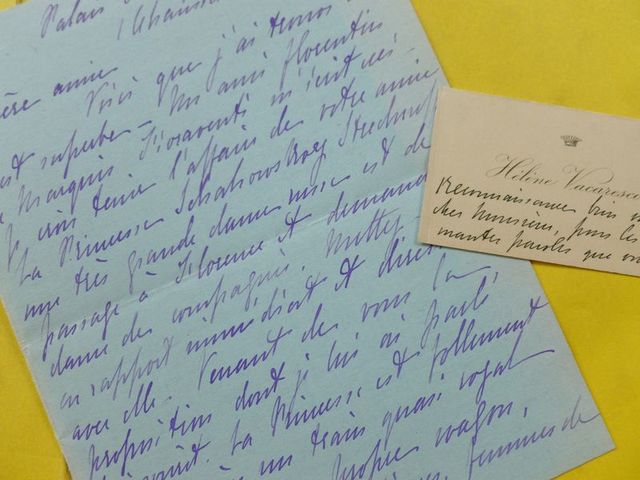 Palais
ère amie
Voici que j'ai trouvé
est superbe — Un ami florentin
Marquis m'écrit ceci
Je crois tenir l'affaire de votre amie
La Princesse Schahowskoy Strechneff
une très grande dame russe est de
passage à Florence et demande
dame de compagnie. Mettez
en rapport immédiat et direct
avec elle. Venant de vous la
proposition dont je lui ai parlé
La Princesse est follement
un train quasi royal
propre wagon,
femmes de
Hélène Vacaresco
Reconnaissance bien
cher Monsieur, pour les
mantes paroles que